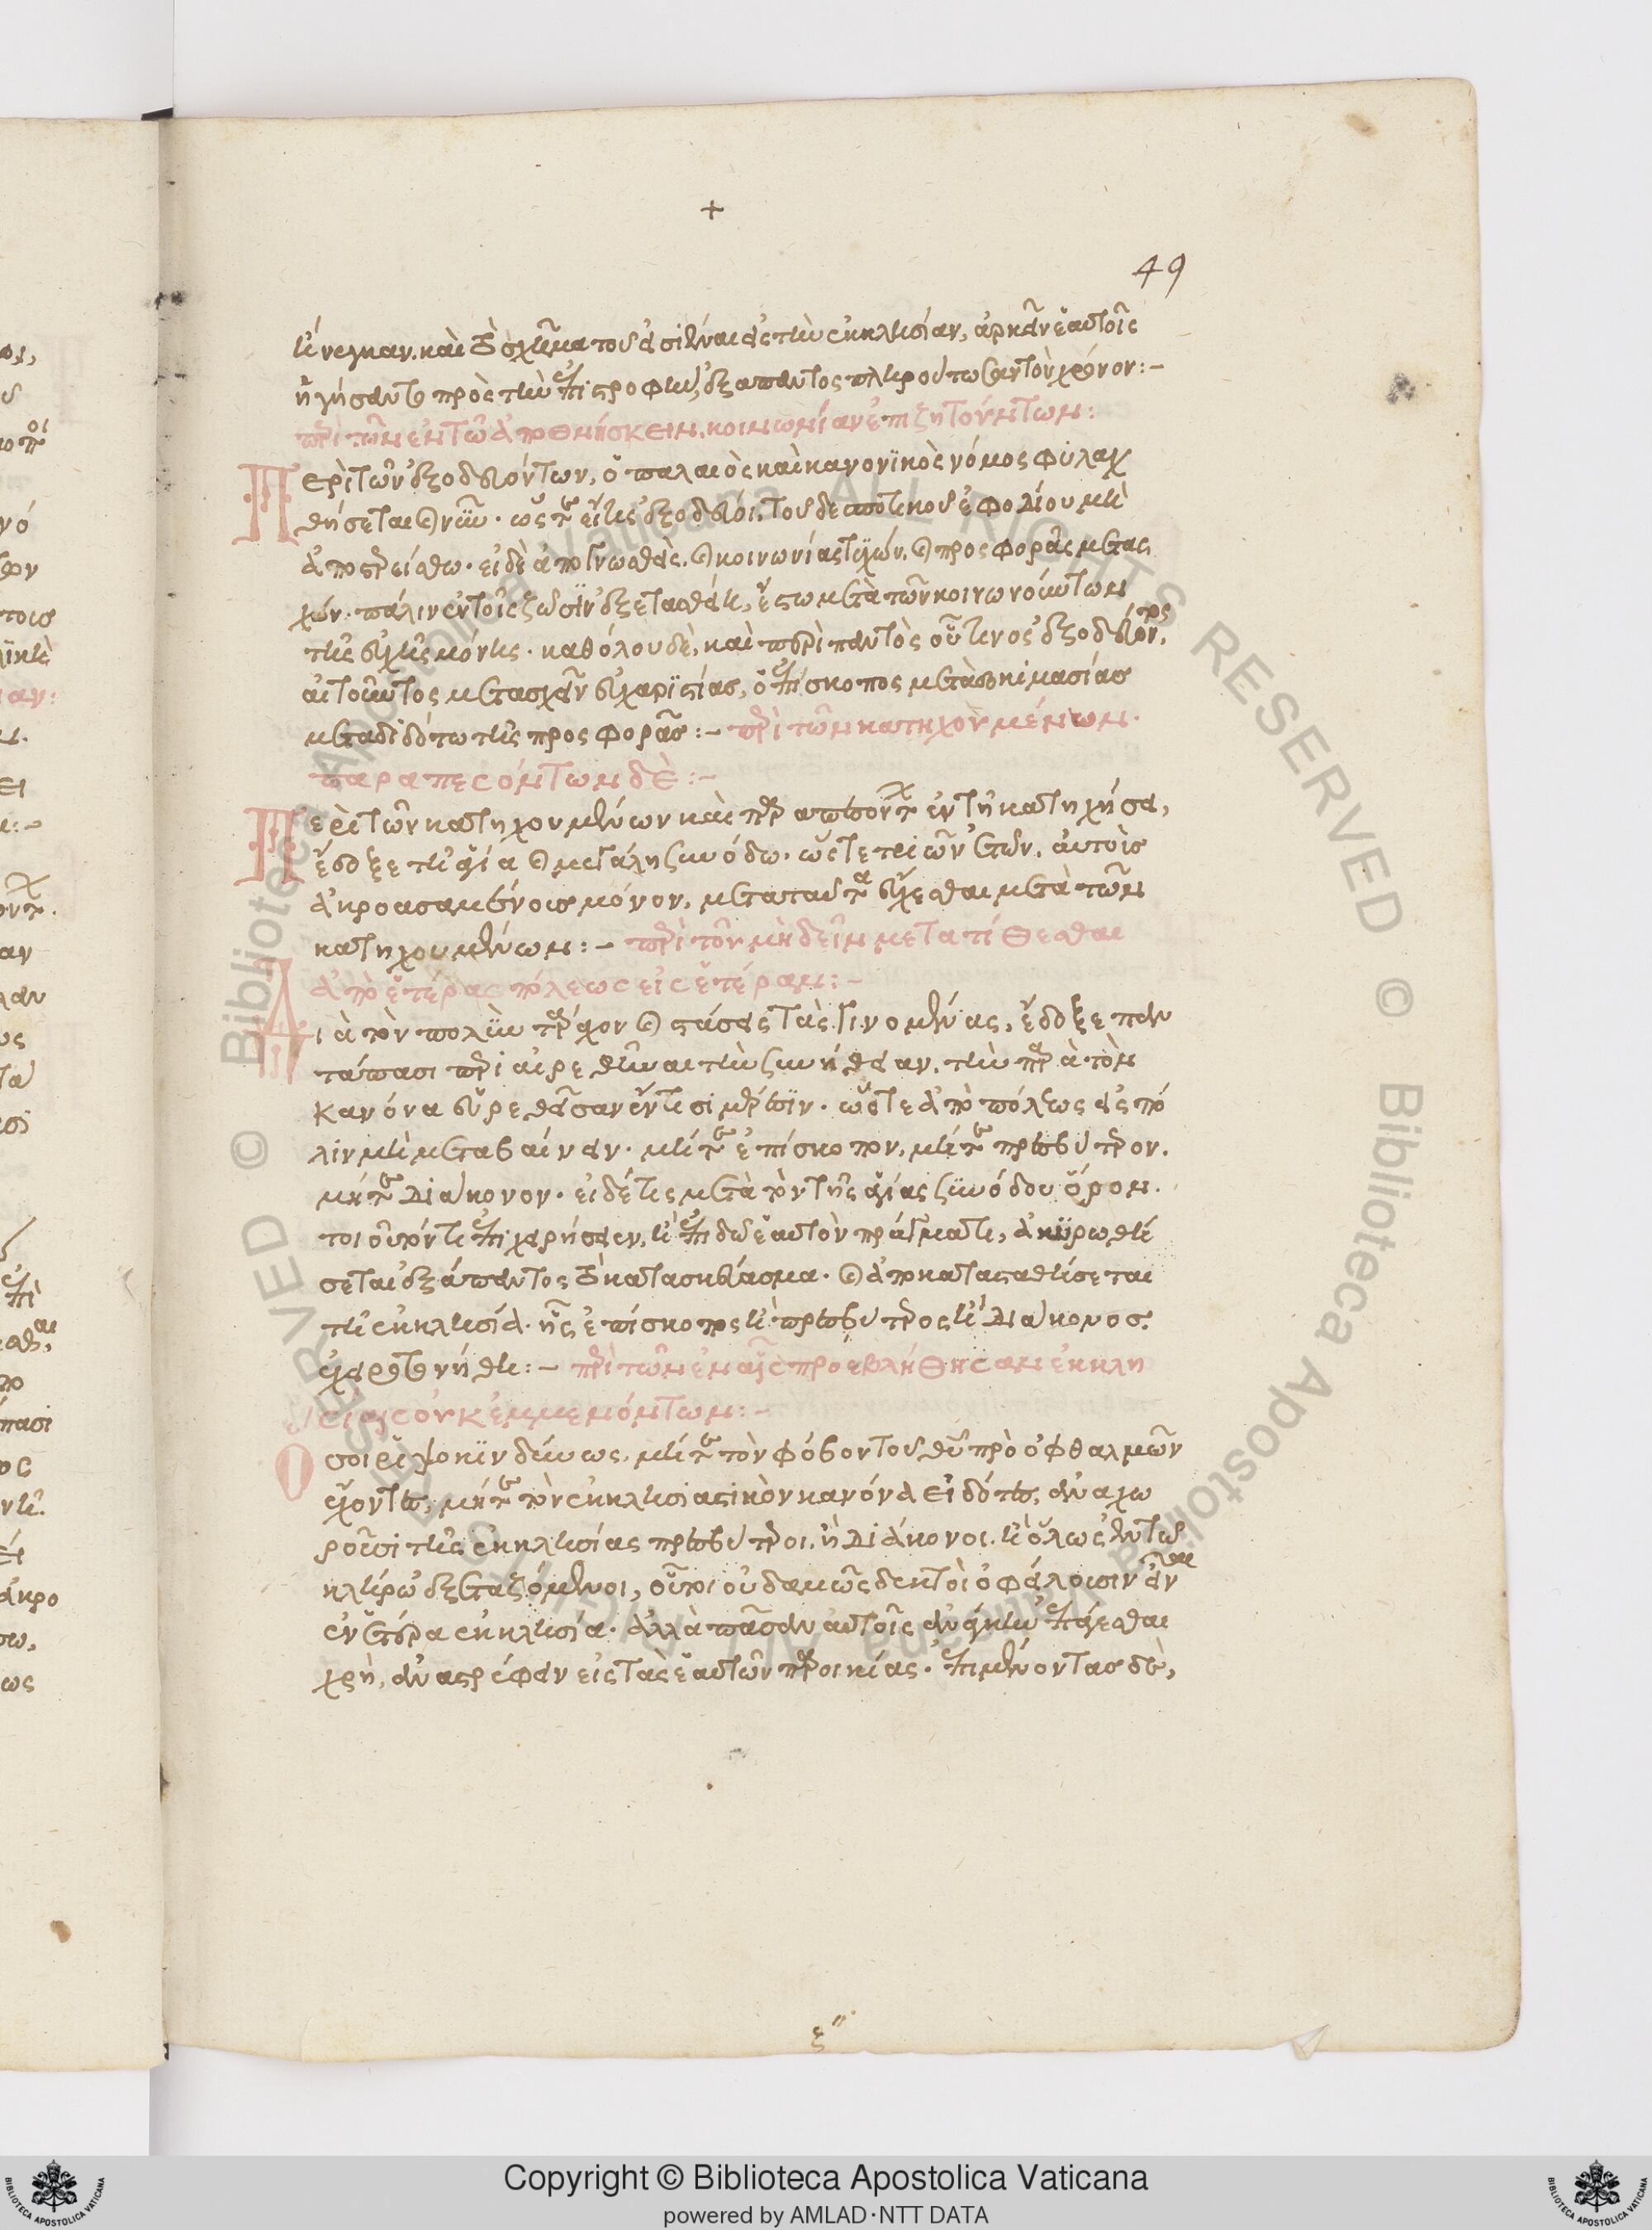 +
49
ἤνεγκαν. καὶ τὸ σχῆμα τοῦ εἰσιέναι εἰς τὴν ἐκκλησίαν, ἀρκεῖν ἑαυτοῖς
ἡγήσαντο πρὸς τὴν ἐπιστροφὴν, ἐξάπαντος πληρούτωσαν τὸν χρόνον:-
περὶ τῶν ἐν τῷ ἀποθνήσκειν, κοινωνίαν ἐπιζητούντων:
Περὶ τῶν ἐξοδευόντων, ὁ παλαιὸς καὶ κανονϊκὸς νόμος φυλαχ
θήσεται καὶ νῦν. ὥστε εἴ τις ἐξοδεύοι, τοῦ δεσποτικοῦ ἐφοδίου μὴ
ἀποστερείσθω. εἰ δὲ ἀπογνωσθεὶς. καὶ κοινωνίας τυχών. καὶ προσφορᾶς μετας
χών. πάλιν ἐν τοῖς ζῶσϊν ἐξετασθείη, ἔστω μετὰ τῶν κοινωνούντων
τῆς εὐχῆς μόνης. καθόλου δὲ, καὶ περὶ παντὸς οὗτινος ἐξοδεύοντος,
αἰτοῦντος μετασχεῖν εὐχαρϊστίας, ὁ ἐπίσκοπος μετὰ δοκιμασίας
μεταδιδότω τῆς προσφορᾶς:- περὶ τῶν κατηχουμένων.
παραπεσόντων δὲ:-
Περὶ τῶν κατηχουμένων καὶ παραπεσόντων ἐν τῇ κατηχήσει,
ἔδοξε τῇ ἁγία καὶ μεγάλη συνόδω. ὥστε τριῶν ἐτῶν. αὐτοὺς
ἀκροασαμένους μόνον, μετὰ ταῦτα εὔχεσθαι μετὰ τῶν
κατηχουμένων:- περὶ τοῦ μὴ δεῖν μετατίθεσθαι
ἀπὸ ἑτέρας πόλεως εἰς ἑτέραν:-
Διὰ τὸν πολὺν τάραχον καὶ στάσεις τὰς γινομένας, ἔδοξε παν
τάπασι περιαιρεθῆναι τὴν συνήθειαν. τὴν παρὰ τὸν
κανόνα εὑρεθεῖσαν ἔν τισι μέρεσϊν. ὥστε ἀπὸ πόλεως εἰς πό
λιν μὴ μεταβαίνειν. μήτε ἐπίσκοπον, μήτε πρεσβύτερον.
μήτε διάκονον. εἰ δέ τις μετὰ τὸν τῆς ἁγίας συνόδου ὅρον.
τοιούτόν τι ἐπιχειρήσειεν, ἢ ἐπιδῶ ἑαυτὸν πράγματι, ἀκϋρωθή
σεται ἐξάπαντος τὸ κατασκεύασμα. καὶ ἀποκατασταθήσεται
τῇ ἐκκλησίᾳ. ἧς ἐπίσκοπος ἢ πρεσβύτερος ἢ διάκονος.
ἐχειροτονήθη:- περὶ τῶν ἐν αἷς προεβλήθησαν ἐκκλη
σίαις οὐκ ἐμμενόντων:-
Ὅσοι ῥιψοκινδύνως, μήτε τὸν φόβον τοῦ θεοῦ πρὸ ὀφθαλμῶν
ἔχοντες, μήτε τὸν ἐκκλησιαστικὸν κανόνα εἰδότες, ἀναχω
ροῦσι τῆς ἐκκλησίας πρεσβύτεροι. ἢ διάκονοι. ἢ ὅλως ἐν τῷ
κλήρω ἐξεταζόμενοι, οὗτοι οὐδαμῶς δεκτοὶ ὀφείλουσιν εἶναι
ἐν ἑτέρα ἐκκλησία. ἀλλὰ πᾶσαν αὐτοῖς ἀνάγκην ἐπάγεσθαι
χρὴ, ἀναστρέφειν εἰς τὰς ἑαυτῶν παροικίας. ἐπιμένοντας δὲ,
ξ''
Copyright © Biblioteca Apostolica Vaticana
powered by AMLAD·NTT DATA